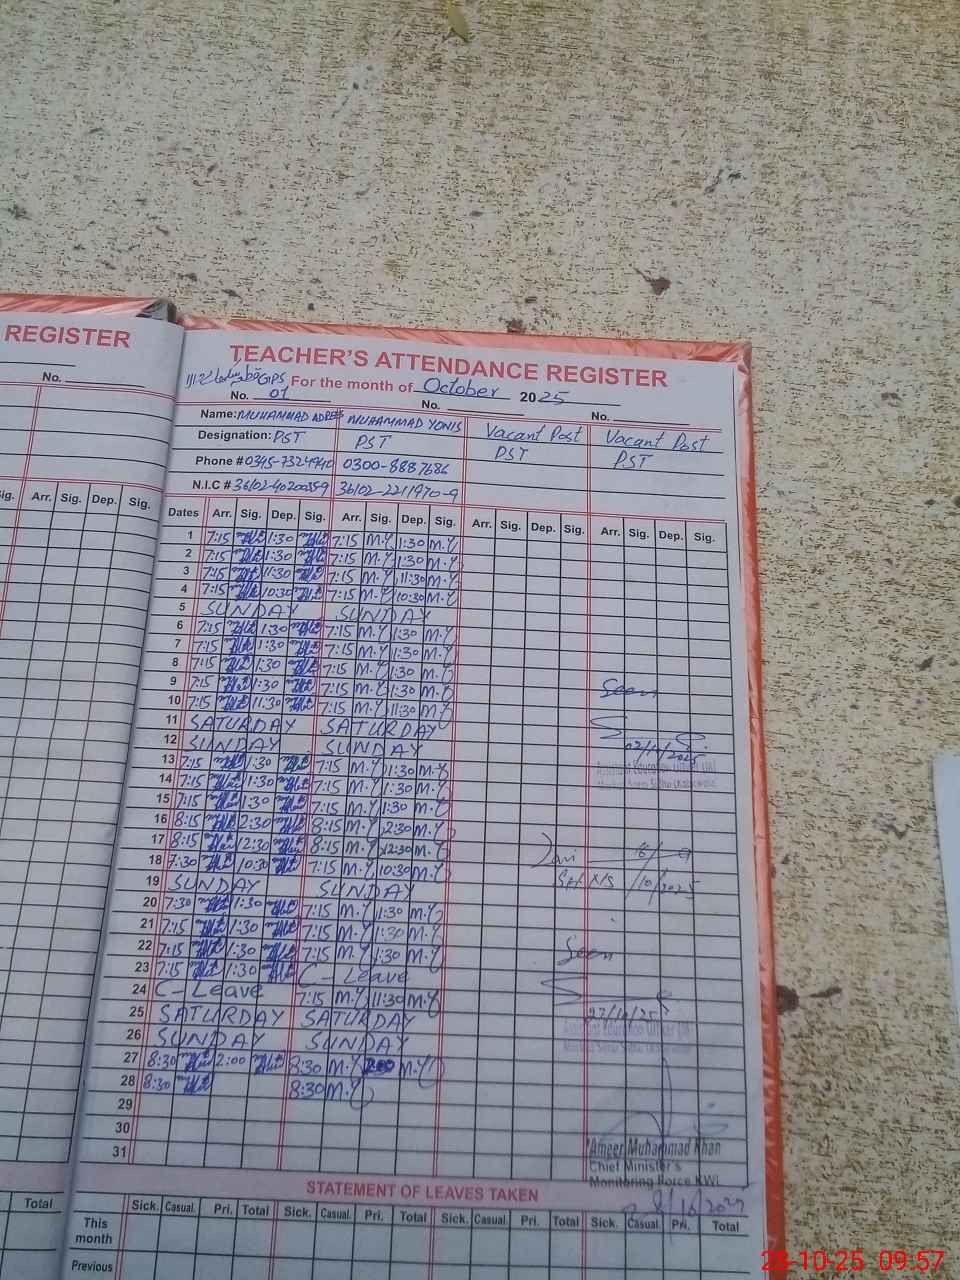 REGISTER
No.
Sig. Arr. Sig. Dep. Sig.
Total
TEACHER'S ATTENDANCE REGISTER
GPS For the month of October 2025
No. 01 No. No.
Name: MUHAMMAD MUHAMMAD YONIS Vacant Post Vacant Post
Designation: PST PST PST PST
Phone # 0300-8887686
N.I.C # 36102-2211970-9
Dates Arr. Sig. Dep. Sig. Arr. Sig. Dep. Sig. Arr. Sig. Dep. Sig. Arr. Sig. Dep. Sig.
1 7:15 1:30 7:15 M.Y 1:30 M.Y
2 7:15 1:30 7:15 M.Y 1:30 M.Y
3 7:15 11:30 7:15 M.Y 11:30 M.Y
4 7:15 10:30 7:15 M.Y 10:30 M.Y
5 SUNDAY SUNDAY
6 7:15 1:30 7:15 M.Y 1:30 M.Y
7 7:15 1:30 7:15 M.Y 1:30 M.Y
8 7:15 1:30 7:15 M.Y 1:30 M.Y
9 7:15 1:30 7:15 M.Y 1:30 M.Y Seen
10 7:15 11:30 7:15 M.Y 11:30 M.Y
11 SATURDAY SATURDAY
12 SUNDAY SUNDAY
13 7:15 1:30 7:15 M.Y 1:30 M.Y
14 7:15 1:30 7:15 M.Y 1:30 M.Y
15 7:15 1:30 7:15 M.Y 1:30 M.Y
16 8:15 2:30 8:15 M.Y 2:30 M.Y
17 8:15 12:30 8:15 M.Y 12:30 M.Y
18 7:30 10:30 7:15 M.Y 10:30 M.Y
19 SUNDAY SUNDAY
20 7:30 1:30 7:15 M.Y 1:30 M.Y
21 7:15 1:30 7:15 M.Y 1:30 M.Y
22 7:15 1:30 7:15 M.Y 1:30 M.Y Seen
23 7:15 1:30 C-Leave
24 C-Leave 7:15 M.Y 11:30 M.Y
25 SATURDAY SATURDAY
26 SUNDAY SUNDAY
27 8:30 2:00 8:30 M.Y M.Y
28 8:30 8:30 M.Y
29
30
31
Ameer Muhammad Khan
Chief Minister's
Monitoring Force KWL
STATEMENT OF LEAVES TAKEN
Sick. Casual. Pri. Total Sick. Casual. Pri. Total Sick. Casual. Pri. Total Sick. Casual. Pri. Total
This month
Previous
28-10-25 09:57